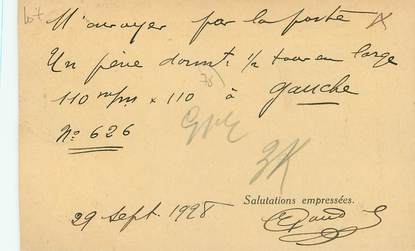 M'envoyer par la poste
Un pène dormt. 1/2 tour en large
110 m/m x 110 à gauche
No 626
3K
Salutations empressées.
29 sept. 1928